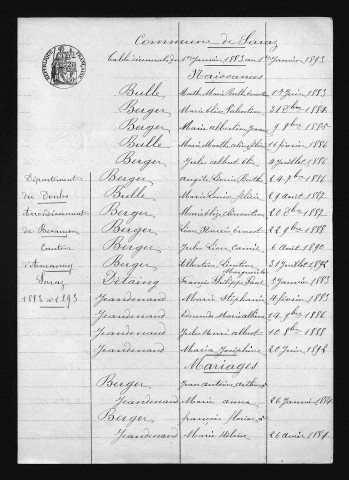 Commune de Saraz
Table décennale du 1er Janvier 1883 au 1er Janvier 1893
Naissances
Bulle Marth Marie Berthe 1er Juin 1883
Berger Marie Eloïse Valentine 31 8bre 1884
Berger Marie albertine Jeanne 9 8bre 1885
Bulle Marie Marthe 16 février 1886
Berger Jules albert 4 Juillet 1886
Département Berger Angèle Marie Berthe 24 7bre 1886
du Doubs Bulle Marie Louise 29 août 1887
Arrondissement Berger Marie Clémentine 20 8bre 1887
de Besançon Berger Léon Henri ernest 22 9bre 1888
Canton Berger Jules Léon Camil 6 août 1890
d'Amancey Berger Albertine Léontine Marguerite 31 Juillet 1892
Saraz Détaing François Philippe Paul 3 Janvier 1883
1883 à 1893 Jeandenand Marie Stéphanie 4 février 1883
Jeandenand Edmond Marie 14 9bre 1886
Jeandenand Jules Henri albert 10 8bre 1888
Jeandenand Maria Joséphine 20 Juin 1892
Mariages
Berger Jean antoine arthur &
Jeandenand Marie anna 26 Janvier 1884
Berger françois florian &
Jeandenand Marie Héloïse 26 avril 1884